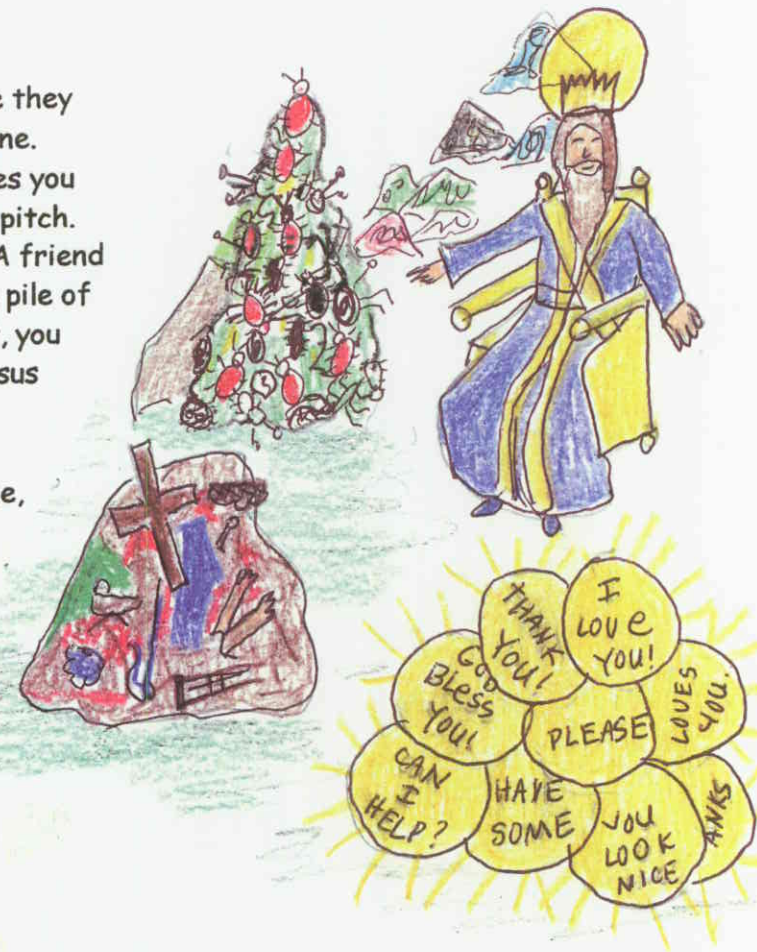 they
ne.
es you
pitch.
A friend
pile of
, you
sus
e,
THANK
YOU!
I
LOVE
YOU!
GOD
BLESS
YOU!
PLEASE
LOVES
YOU.
CAN
I
HELP?
HAVE
SOME
YOU
LOOK
NICE
ANKS